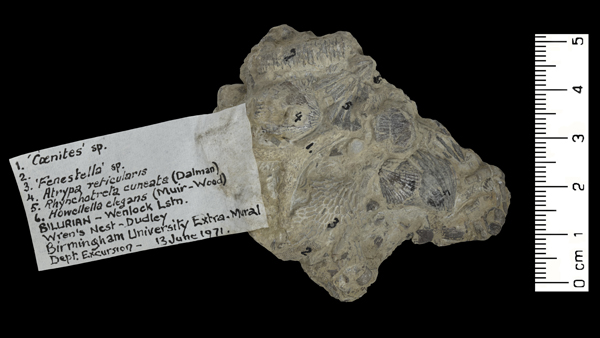 1. 'Cœnites' sp.
2.
3. 'Fenestella' sp.
4. Atrypa reticularis
5. Rhynchotreta cuneata (Dalman)
6. Howellella elegans (Muir-Wood)
SILURIAN - Wenlock Lstn.
Wren's Nest - Dudley
Birmingham University Extra-Mural
Dept. Excursion - 13 June 1971.
5
4
3
2
1
0 cm